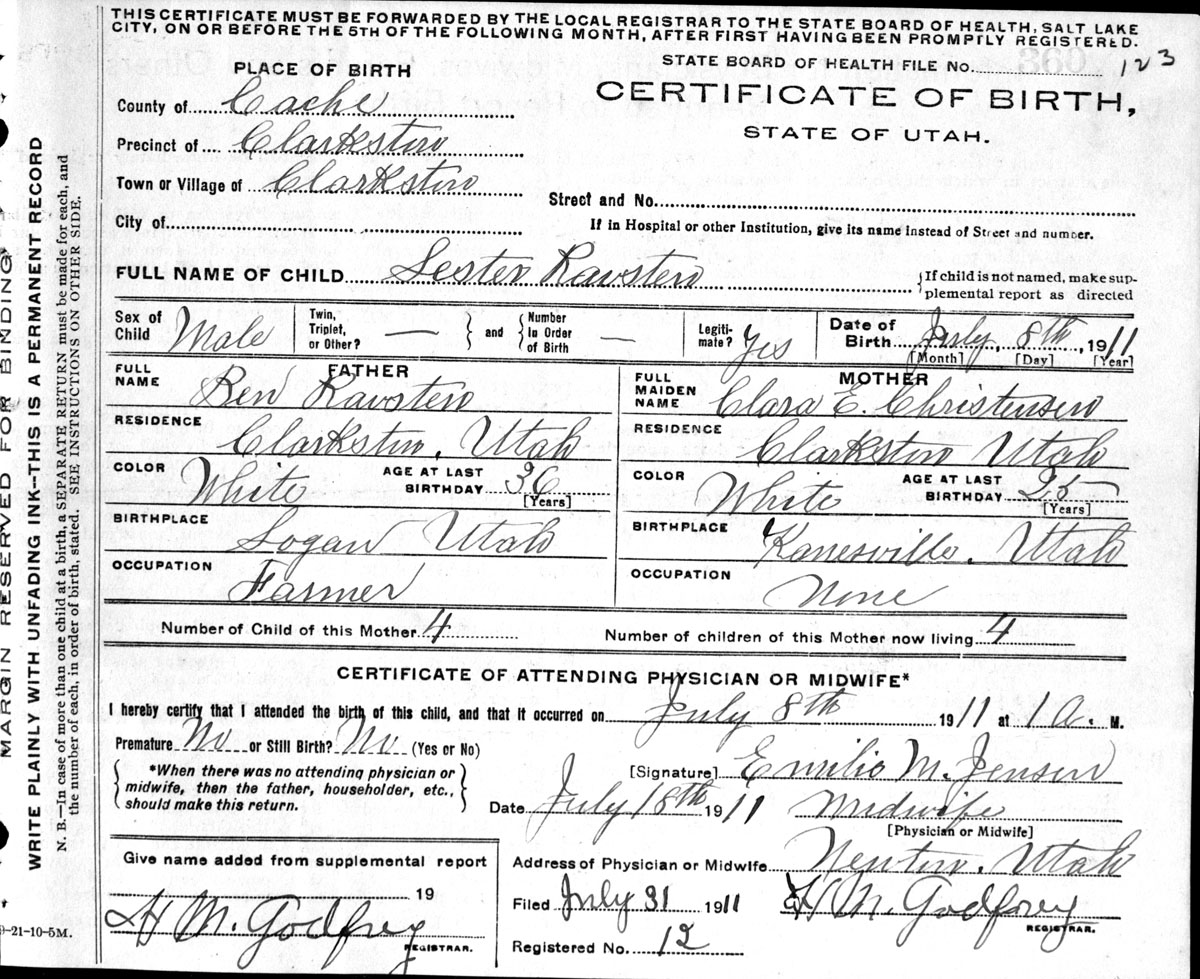 THIS CERTIFICATE MUST BE FORWARDED BY THE LOCAL REGISTRAR TO THE STATE BOARD OF HEALTH, SALT LAKE
CITY, ON OR BEFORE THE 5TH OF THE FOLLOWING MONTH, AFTER FIRST HAVING BEEN PROMPTLY REGISTERED.
STATE BOARD OF HEALTH FILE No. 123
CERTIFICATE OF BIRTH,
STATE OF UTAH.
PLACE OF BIRTH
County of Cache
Precinct of Clarkston
Town or Village of Clarkston
Street and No.
City of
If in Hospital or other Institution, give its name instead of Street and number.
FULL NAME OF CHILD Lester Ravsten
{If child is not named, make sup-
plemental report as directed
Sex of Child Male
Twin, Triplet, or Other? — } and { Number In Order of Birth —
Legiti-mate? Yes
Date of Birth July, 8th, 1911
[Month] [Day] [Year]
FATHER
FULL NAME Ben Ravsten
RESIDENCE Clarkston, Utah
COLOR White AGE AT LAST BIRTHDAY 36 [Years]
BIRTHPLACE Logan Utah
OCCUPATION Farmer
MOTHER
FULL MAIDEN NAME Clara E. Christensen
RESIDENCE Clarkston Utah
COLOR White AGE AT LAST BIRTHDAY 25 [Years]
BIRTHPLACE Kanesville, Utah
OCCUPATION None
Number of Child of this Mother 4 Number of children of this Mother now living 4
CERTIFICATE OF ATTENDING PHYSICIAN OR MIDWIFE*
I hereby certify that I attended the birth of this child, and that it occurred on July 8th 1911 at 1 a. M.
Premature No or Still Birth? No (Yes or No)
{ *When there was no attending physician or
midwife, then the father, householder, etc.,
should make this return. }
[Signature] Emilie M. Jensen
Date July 18th 1911 Midwife
[Physician or Midwife]
Address of Physician or Midwife Newton, Utah
Give name added from supplemental report
19
H M. Godfrey
REGISTRAR.
Filed July 31 1911 H M. Godfrey
REGISTRAR.
Registered No. 12
9-21-10-5M.
MARGIN RESERVED FOR BINDING
WRITE PLAINLY WITH UNFADING INK--THIS IS A PERMANENT RECORD
N. B.—In case of more than one child at a birth, a SEPARATE RETURN must be made for each, and
the number of each, in order of birth, stated. SEE INSTRUCTIONS ON OTHER SIDE.